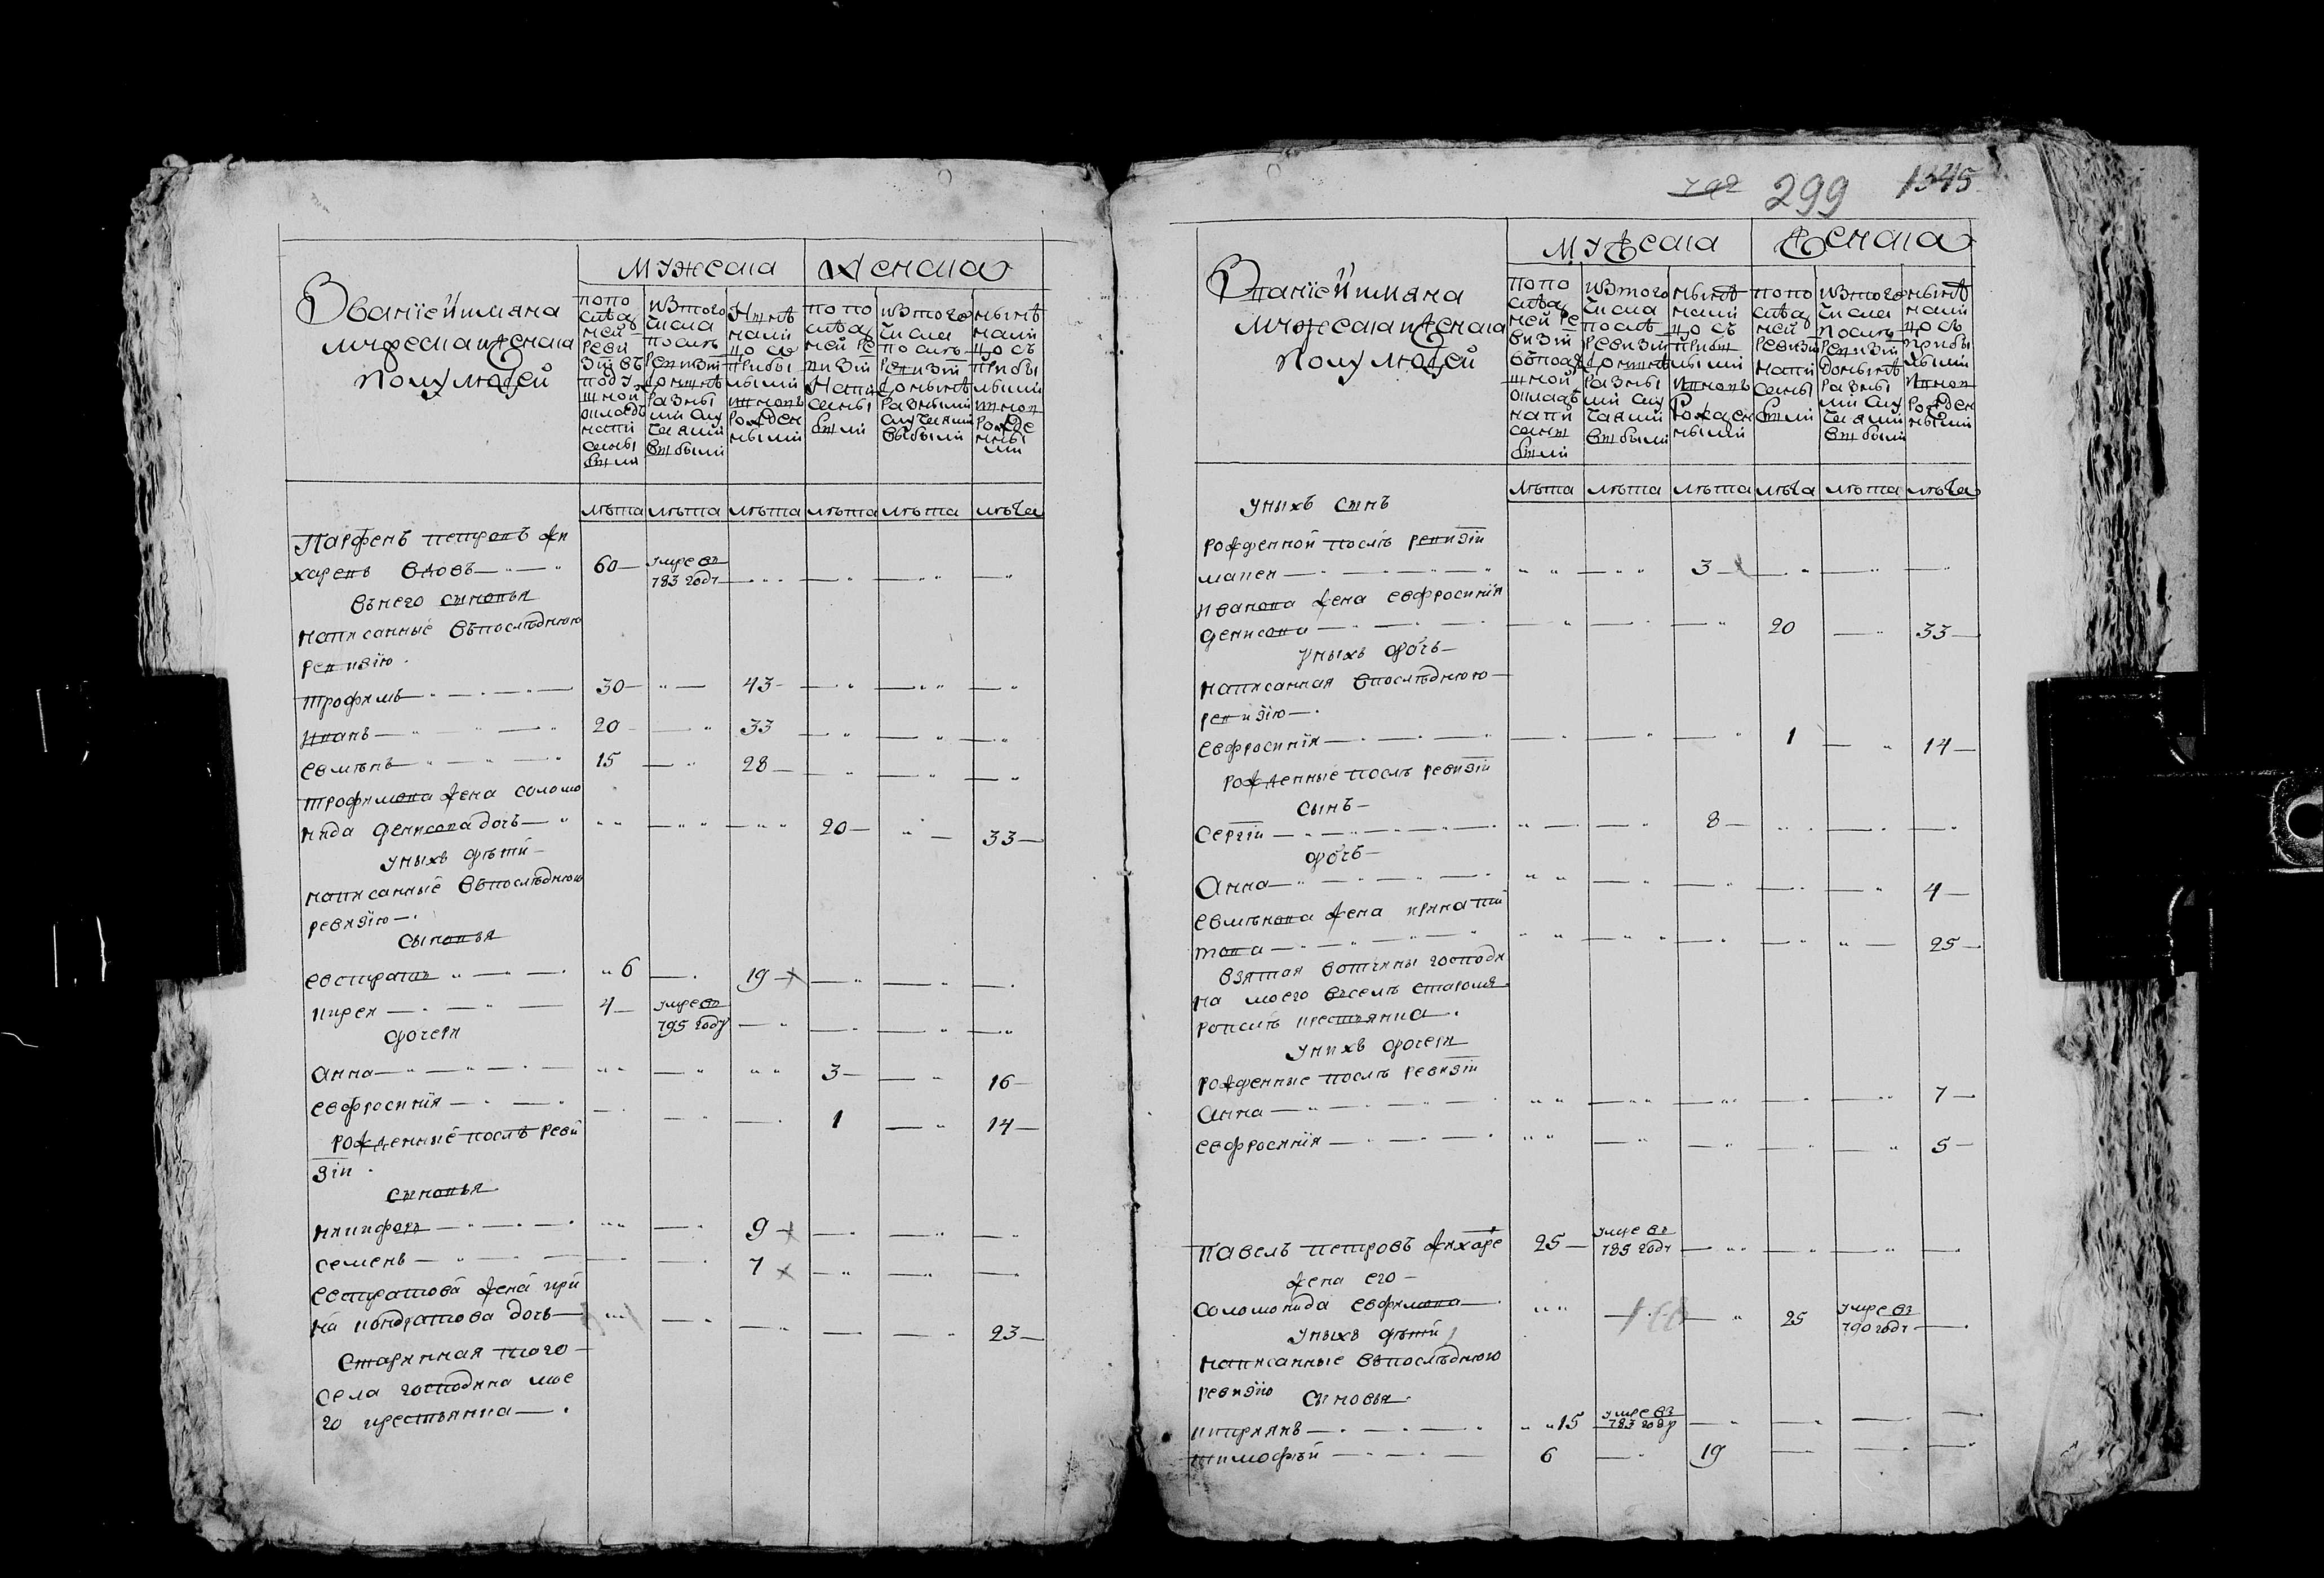 Званїе и имяна
мужеска и женска
полу людей
мужеска
женска
по по
следней
реви
зїи въ
поду
шной
окладъ
напи
саны
были
изъ того
числа
послѣ
ревизїи
до ныне
разны
ми слу
чаями
выбыли
Ныне
нали
цо съ
прибы
лыми
и вновь
рожден
ными
по по
следней ре
визїи
напи
саны
были
изъ того
числа
послѣ
ревизїи
до ныне
разными
случаями
выбыли
ныне
нали
цо съ
прибы
лыми
и внов
рожде
нны
ми
лѣта лѣта лѣта лѣта лѣта лѣта
Парфенъ петровъ жи
харевъ вдовъ 60 умре въ
783 году
внего сыновья
написанные въпоследнюю
ревизїю
трофимъ 30 43
иванъ 20 33
15 28
трофимова жена соломо
нида денисова дочь 20 33
уныхъ дѣти
написанные въпоследнюю
ревизїю
сыновья
евстратъ 6 19
кирея 4 умре въ
795 году
дочери
анна 3 16
евфросинїя 1 14
рожденные послѣ реви
зїи
сыновья
никифоръ 9
семенъ 7
евстратова жена ири
на кондратова дочь 23
старинная того
села господина мое
го крестьянка
792 299 1345
Званїе и имяна
мужеска и женска
полу людей
мужеска
женска
по по
следней ре
визїи
въ поду
шной
окладъ
напи
саны
были
изъ того
числа
послѣ
ревизїи
до ныне
разны
ми слу
чаями
выбыли
ныне
нали
цо съ
прибы
лыми
и вновь
рожден
ными
по по
следней
ревизїи
напи
саны
были
изъ того
числа
послѣ
ревизїи
до ныне
разны
ми слу
чаями
выбыли
ныне
нали
цо съ
прибы
лыми
и внов
рожден
ными
лѣта лѣта лѣта лѣта лѣта лѣта
уныхъ сынъ
рожденной послѣ ревизїи
макей 3
иванова жена евфросинїя
денисова 20 33
уныхъ дочь
написанная впоследнюю
ревизїю
евфросинїя 1 14
рожденные послѣ ревизїи
сынъ
Сергїй 8
дочь
Анна 4
жена
25
взятая вотчины господи
на моего въселѣ
крестьянка
унихъ дочери
рожденные послѣ ревизїи
анна 7
евфросинїя 5
павелъ петровъ жихаре 25 умре въ
785 году
жена его
соломонида евфимова 25 умре въ
790 году
уныхъ дѣти
написанные въпоследнюю
ревизїю сыновья
киприянъ 15 умре въ
783 году
тимофѣй 6 19